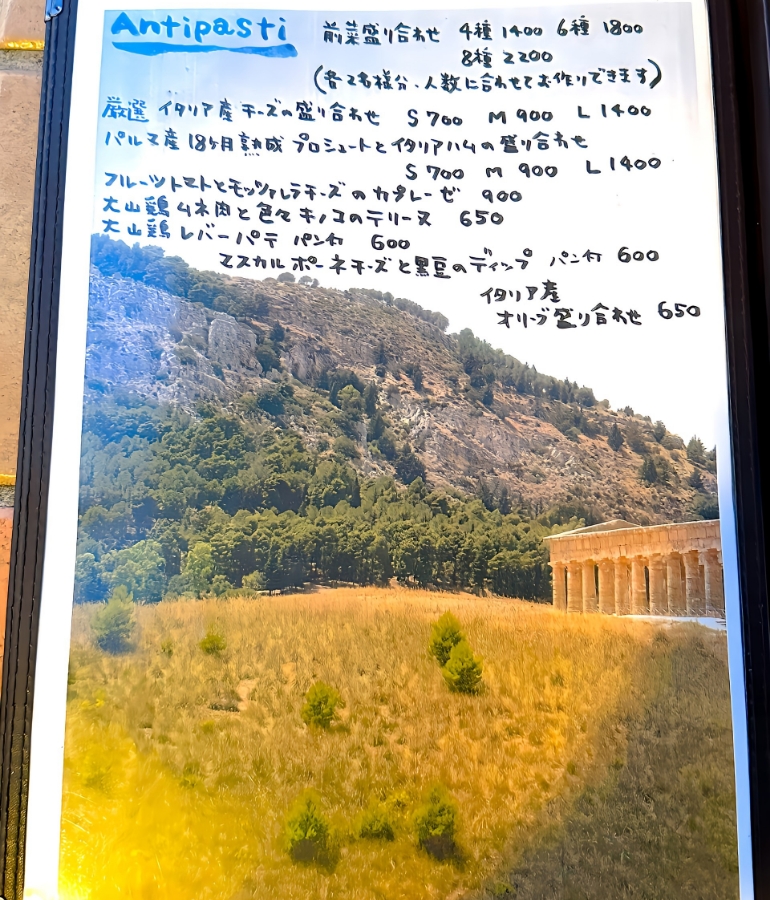 Antipasti 前菜盛り合わせ 4種 1400 6種 1800
8種 2200
(各2名様分、人数に合わせてお作りできます)
厳選 イタリア産チーズの盛り合わせ S 700 M 900 L 1400
パルマ産18ヶ月熟成 プロシュートとイタリアハムの盛り合わせ
S 700 M 900 L 1400
フルーツトマトとモッツァレラチーズのカプレーゼ 900
大山鶏ムネ肉と色々キノコのテリーヌ 650
大山鶏レバーパテ パン付 600
マスカルポーネチーズと黒豆のディップ パン付 600
イタリア産
オリーブ盛り合わせ 650